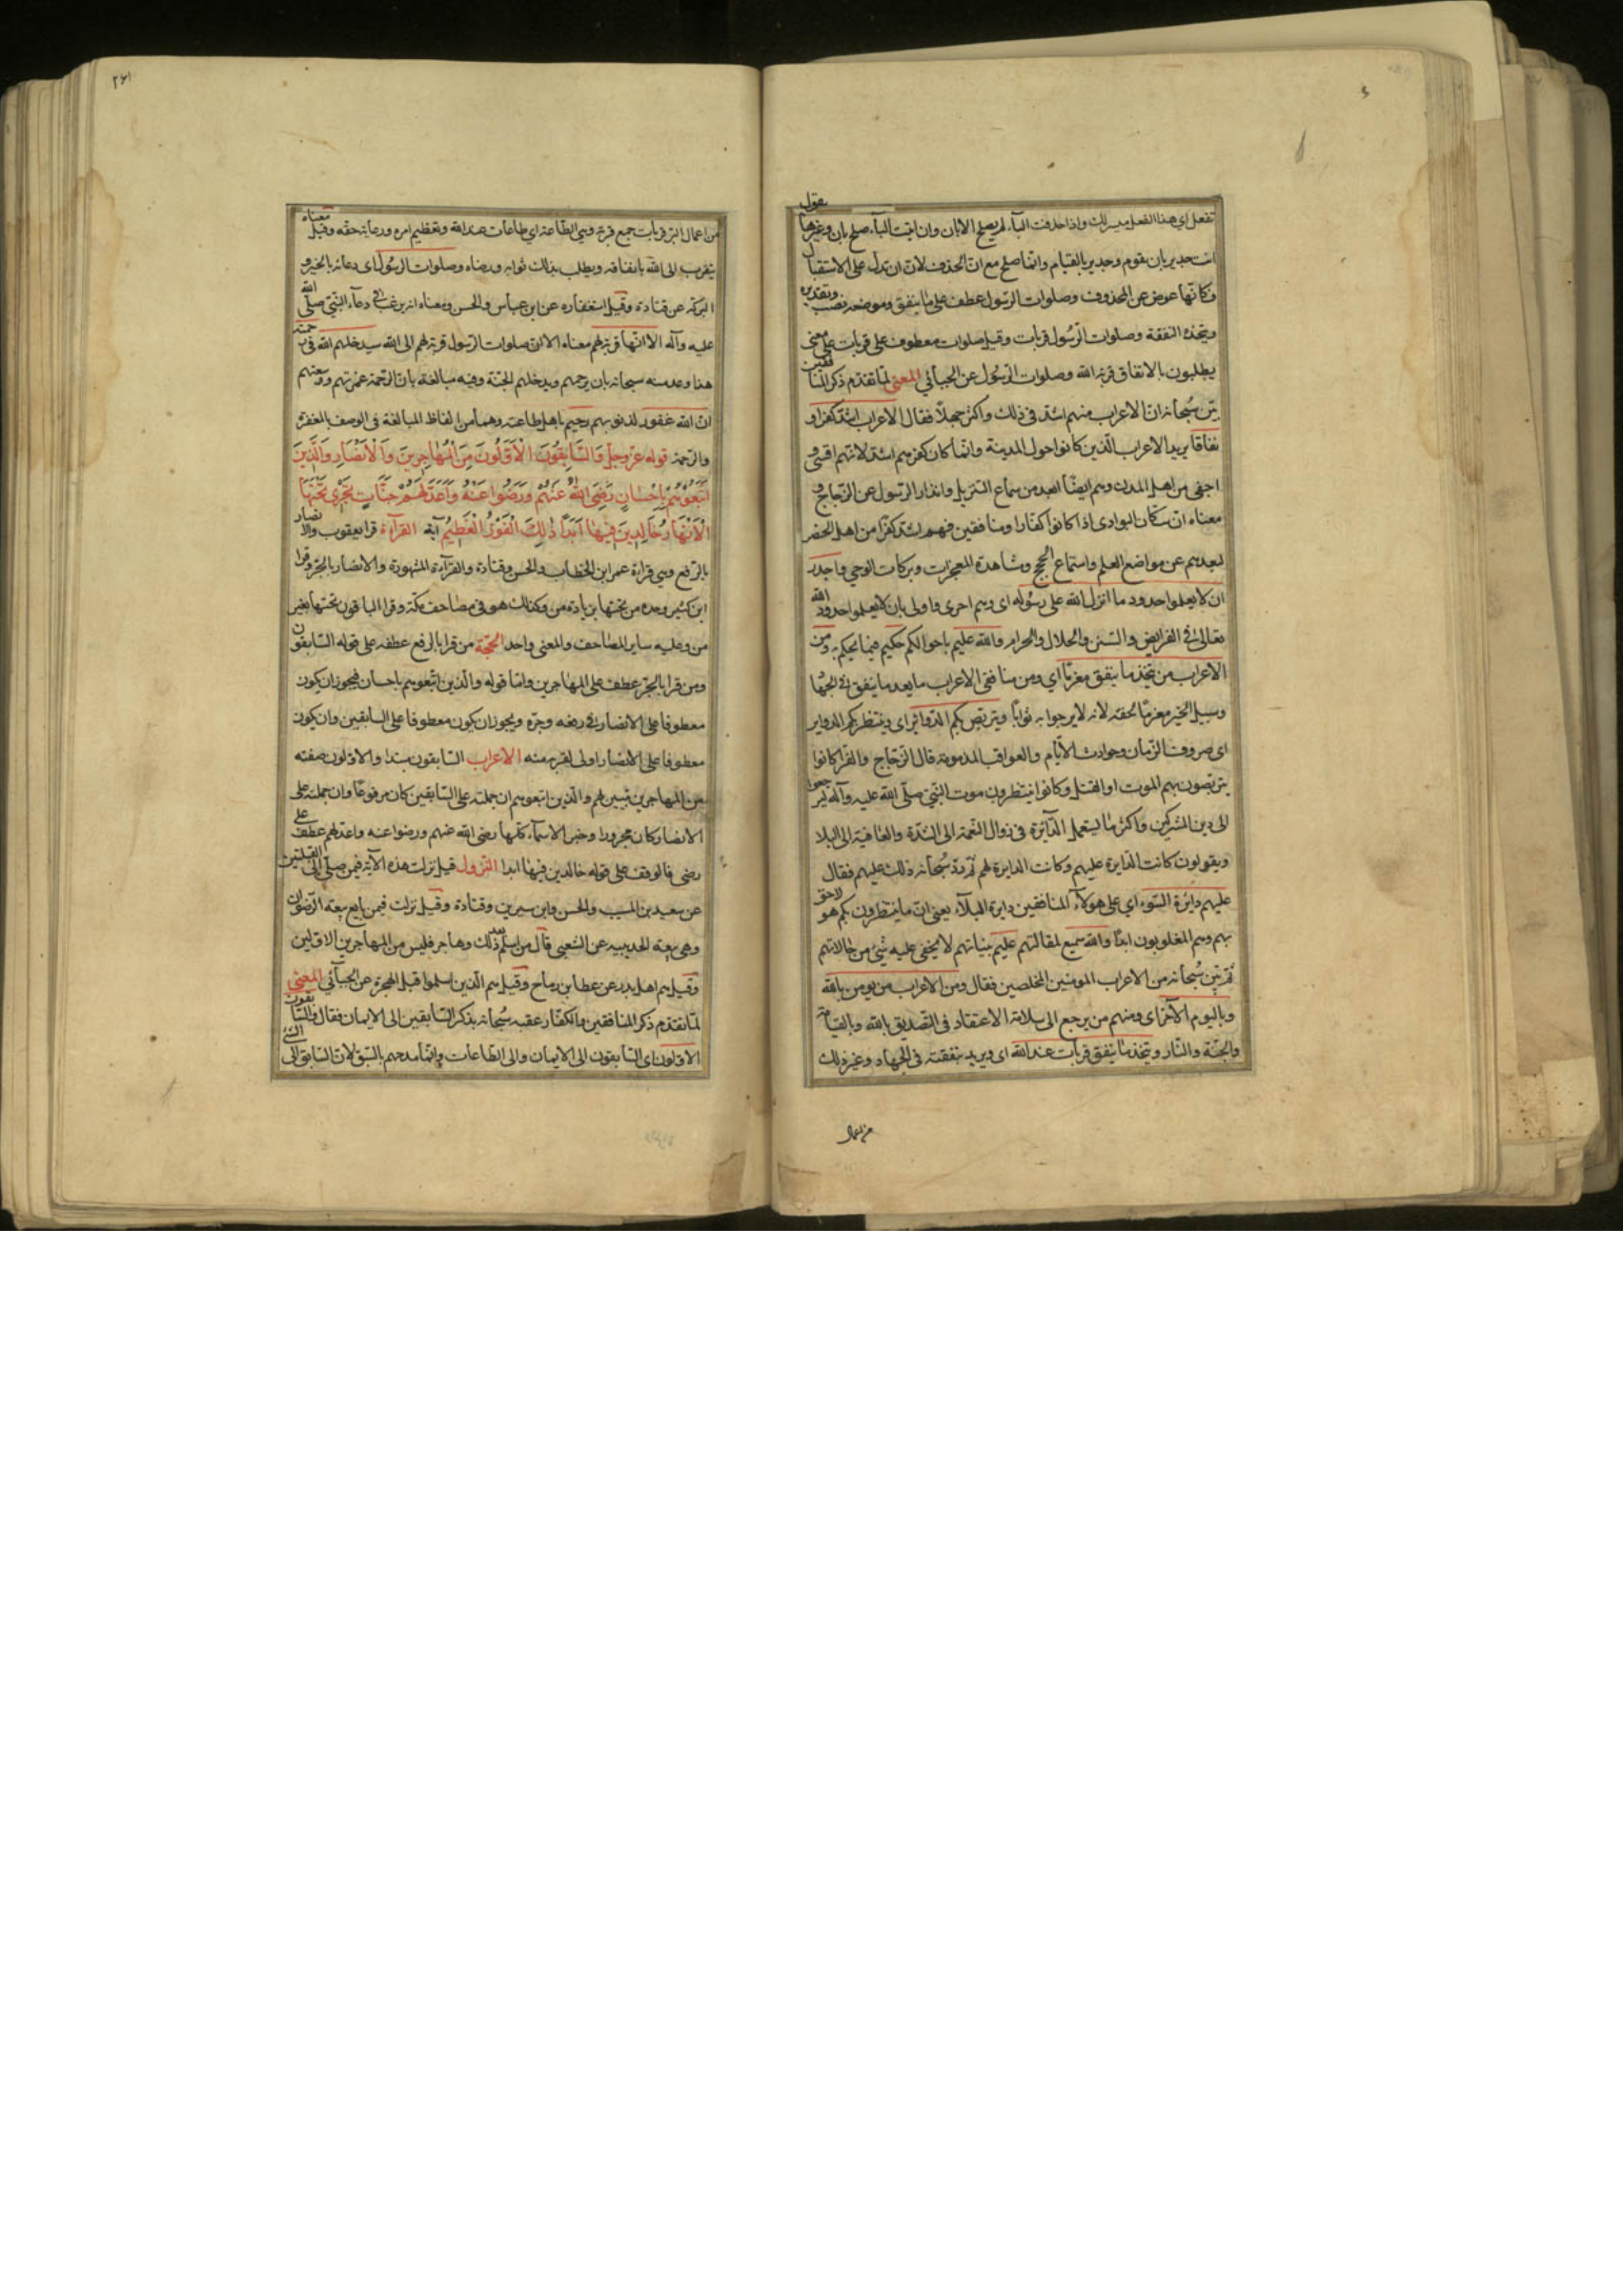 تفعل اي هذا الفعل ميسر لك واذا حذفت الباء لم يصلح الا بان وان اثبت الباء صلح بان وغيرها يقول
انت جدير بان يقوم وجدير بالقيام وانما صلح مع ان الحذف لان ان تدل على الاستقبال
فكانها عوض عن المحذوف وصلوات الرسول عطف على ما ينفق وموضعه نصب وتقديره
ويتخذ النفقة وصلوات الرسول قربات وقيل صلوات معطوف على قربات على معنى
يطلبون بالانفاق قربة الله وصلوات الرسول عن الجبائي المعنى لما تقدم ذكر المنافقين
بين سبحانه ان الاعراب منهم اشد في ذلك واكثر جهلا فقال الاعراب اشد كفرا و
نفاقا يريد الاعراب الذين كانوا حول المدينة وانما كان كفرهم اشد لانهم اقسى و
اجفى من اهل المدن وهم ايضا ابعد من سماع التنزيل وانذار الرسول عن الزجاج و
معناه ان سكان البوادي اذا كانوا كفارا ومنافقين فهم اشد كفرا من اهل الحضر
لبعدهم عن مواضع العلم واستماع الحجج ومشاهدة المعجزات وبركات الوحي واجدر
ان لا يعلموا حدود ما انزل الله على رسوله اى وهم احرى واولى بان لا يعلموا حدود الله
تعالى في الفرايض والسنن والحلال والحرام والله عليم باحوالكم حكيم فيما يحكم به ومن
الاعراب من يتخذ ما ينفق مغرما اي ومن منافقى الاعراب ما يعد ما ينفق في الجهاد
وسبيل الخير مغرما لحقه لانه لا يرجوا به ثوابا ويتربص بكم الدوائر اى وينتظر بكم الدواير
اى صروف الزمان وحوادث الايام والعواقب المذمومة قال الزجاج والفرا كانوا
يتربصون بهم الموت او القتل وكانوا ينتظرون موت النبي صلى الله عليه وآله ليرجعوا
الى دين المشركين واكثر ما يستعمل الدائرة في زوال النعمة الى الشدة والعافية الى البلا
ويقولون كانت الدايرة عليهم وكانت الدايرة لهم ثم رد سبحانه ذلك عليهم فقال
عليهم دائرة السوء اي على هولاء المنافقين دايرة البلاء يعني ان ما ينتظرون بكم هو لاحق
بهم وهم المغلوبون ابدا والله سميع لمقالتهم عليم بنياتهم لا يخفى عليه شئ من حالاتهم
ثم بين سبحانه من الاعراب المومنين المخلصين فقال ومن الاعراب من يومن بالله
وباليوم الآخر اى ومنهم من يرجع الى سلامة الاعتقاد في التصديق بالله وبالقيامة
والجنة والنار ويتخذ ما ينفق قربات عند الله اى ويريد بنفقته في الجهاد وغير ذلك
من اعمال
٢٦١
من اعمال البر قربات جمع قربة وهي الطاعة اي طاعات عند الله وتعظيم امره ورعاية حقه وقيل معناه
يتقرب الى الله بانفاقه ويطلب بذلك ثوابه ورضاه وصلوات الرسول اى دعائه بالخير و
البركة عن قتادة وقيل استغفاره عن ابن عباس والحسن ومعناه انه يرغب في دعاء النبي صلى الله
عليه وآله الا انها قربة لهم معناه الا ان صلوات الرسول قربة لهم الى الله سيدخلهم الله في رحمته
هذا وعد منه سبحانه بان يرحمهم ويدخلهم الجنة وفيه مبالغة بان الرحمة غمرتهم ووسعتهم
ان الله غفور لذنوبهم رحيم باهل طاعته وهما من الفاظ المبالغة فى الوصف بالمغفرة
والرحمة قوله عز وجل وَالسَّابِقُونَ الْاَوَّلُونَ مِنَ الْمُهَاجِرِينَ وَالْاَنْصَارِ وَالَّذِينَ
اتَّبَعُوهُمْ بِاِحْسَانٍ رَضِىَ اللهُ عَنْهُمْ وَرَضُوا عَنْهُ وَاَعَدَّ لَهُمْ جَنَّاتٍ تَجْرِى تَحْتَهَا
الْاَنْهَارُ خَالِدِينَ فِيهَا اَبَدًا ذٰلِكَ الْفَوْزُ الْعَظِيمُ آية القرآءة قرا يعقوب والانصار
بالرفع وهي قراءة عمر ابن الخطاب والحسن وقتادة والقرآءة المشهورة والانصار بالجر وقرا
ابن كثير وحده من تحتها بزيادة من وكذلك هو في مصاحف مكة وقرا الباقون تحتها بغير
من وعليه ساير المصاحف والمعنى واحد الحجة من قرا بالرفع عطفه على قوله السابقون
ومن قرا بالجر عطفه على المهاجرين واما قوله والذين اتبعوهم باحسان فيجوز ان يكون
معطوفا على الانصار في رفعه وجره ويجوز ان يكون معطوفا على السابقين وان يكون
معطوفا على الانصار اولى لقربه منه الاعراب السابقون مبتدا والاولون صفته
من المهاجرين تبيين لهم والذين اتبعوهم ان حملته على السابقين كان مرفوعا وان حملته على
الانصار كان مجرورا وخبر الاسماء كلها رضي الله عنهم ورضوا عنه واعد لهم عطف على
رضى فالوقف على قوله خالدين فيها ابدا النزول قيل نزلت هذه الآية فيمن صلى الى القبلتين
عن سعيد بن المسيب والحسن وابن سيرين وقتادة وقيل نزلت فيمن بايع بيعة الرضوان
وهى بيعة الحديبيه عن الشعبى قال من اسلم بعد ذلك وهاجر فليس من المهاجرين الاولين
وقيل هم اهل بدر عن عطا بن رباح وقيل هم الذين اسلموا قبل الهجرة عن الجبائي المعنى
لما تقدم ذكر المنافقين والكفار عقبه سبحانه بذكر السابقين الى الايمان فقال والسابقون
الاولون اى السابقون الى الايمان والى الطاعات وانما مدحهم بالسبق لان السابق الى الشئ